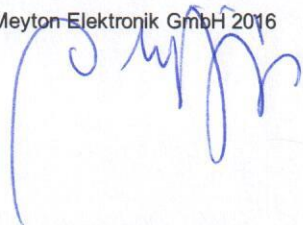 Meyton Elektronik GmbH 2016